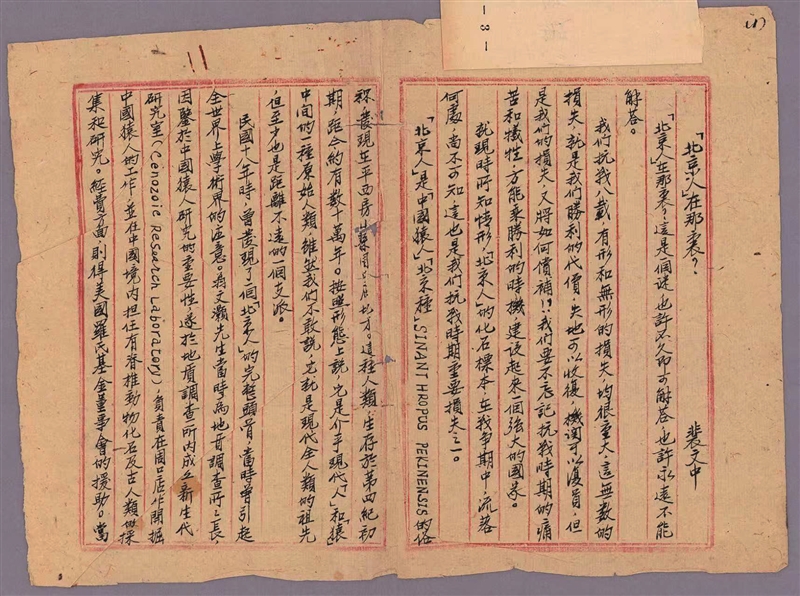 (1)
「北京人」在那裏？
裴文中
「北京人」在那裏？這是一個謎，也許不久即可解答，也許永遠不能
解答。
我們抗戰八載，有形和無形的損失，均很重大，這無數的
損失，就是我們勝利的代價，失地可以收復，機関可以復員，但
是我們的損失，又將如何償補！？我們要不忘記抗戰時期的痛
苦和犧牲，方能乘勝利的時機，建設起來一個強大的國家。
就現時所知情形，「北京人」的化石標本，在戰爭期中，流落
何處，尚不可知，這也是我們抗戰時期重要損失之一。
「北京人」是「中國猿人」「北京種」，SINANTHROPUS PEKINENSIS 的俗
稱，發現在平西房山縣周口店地方。這種人類，生存於第四紀初
期，距今約有數十萬年。按照形態上說，尤是介乎現代「人」和「猿」
中间的一種原始人類，雖然我們不敢說，尤就是現代全人類的祖先
但至少也是距離不遠的一個支派。
民國十八年時，曾發現了一個「北京人」的完整頭骨，當時曾引起
全世界上學術界的注意。翁文灝先生當時為地質調查所之長，
因鑒於中國猿人研究的重要性，遂於地質調查所内成立新生代
研究室(Cenozoic Research Laboratory)，負責在周口店作開掘
中國猿人的工作，並在中國境內担任有脊椎動物化石及古人類的採
集和研究。經費方面，則得美國羅氏基金董事會的援助。當
－8－